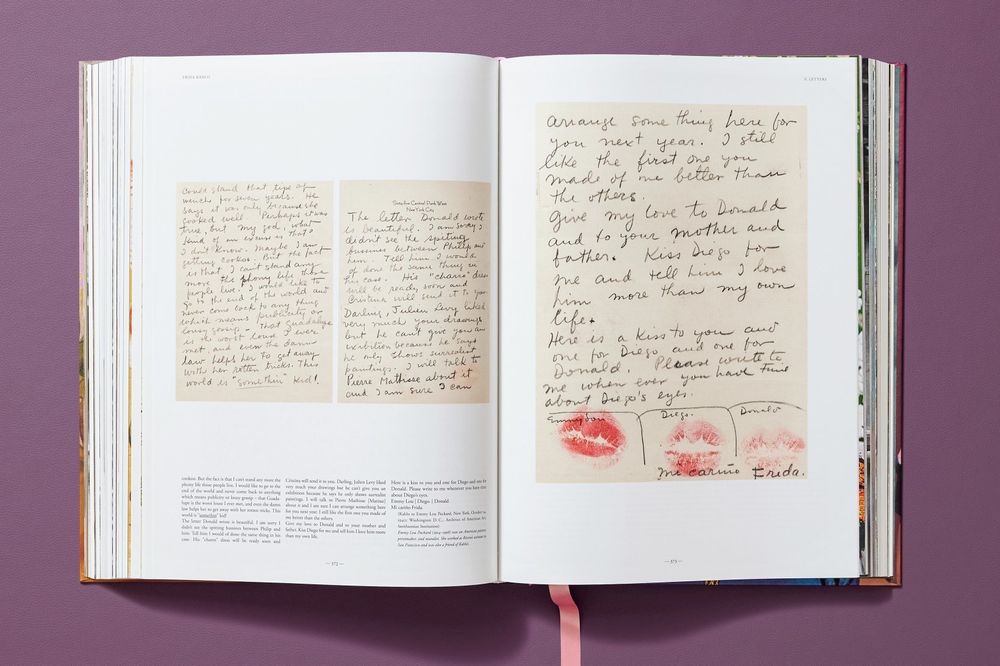 FRIDA KAHLO
could stand that type of
wench for seven years. He
says it was only because she
cooked well. Perhaps it was
true, but my god, what
kind of an excuse is that?
I don't know. Maybe I am
getting cookoo. But the fact
is that I can't stand any
more the phony life those
people live. I would like to
go to the end of the world and
never come back to any thing
which means publicity or
lousy gossip - That Guadalupe
is the worst louse I ever
met, and even the damn
law helps her to get away
with her rotten tricks. This
world is "somethin" kid!
Seventy Central Park West
New York City
The letter Donald wrote
is beautiful. I am sorry I
didn't see the spitting
bussines between Philip and
him. Tell him I would
of done the same thing in
his case. His "charro" dress
will be ready soon and
Cristina will send it to you.
Darling, Julien Levy liked
very much your drawings
but he can't give you an
exibition because he says
he only shows surrealist
paintings. I will talk to
Pierre Mathisse about it
and I am sure I can
cookoo. But the fact is that I can't stand any more the
phony life those people live. I would like to go to the
end of the world and never come back to anything
which means publicity or lousy gossip - that Guada-
lupe is the worst louse I ever met, and even the damn
law helps her to get away with her rotten tricks. This
world is "somethin" kid!
The letter Donald wrote is beautiful, I am sorry I
didn't see the spitting bussines between Philip and
him. Tell him I would of done the same thing in his
case. His "charro" dress will be ready soon and
Cristina will send it to you. Darling, Julien Levy liked
very much your drawings but he can't give you an
exhibition because he says he only shows surrealist
paintings. I will talk to Pierre Mathisse [Matisse]
about it and I am sure I can arrange something here
for you next year. I still like the first one you made of
me better than the others.
Give my love to Donald and to your mother and
father. Kiss Diego for me and tell him I love him more
than my own life.
Here is a kiss to you and one for Diego and one for
Donald. Please write to me whenever you have time
about Diego's eyes.
Emmy Lou | Diego | Donald
Mi cariño Frida
(Kahlo to Emmy Lou Packard, New York, October 24,
1940: Washington D. C., Archives of American Art,
Smithsonian Institution)
Emmy Lou Packard (1914–1998) was an American painter,
printmaker, and muralist. She worked as Rivera's assistant in
San Francisco and was also a friend of Kahlo's.
— 372 —
II. LETTERS
arrange some thing here for
you next year. I still
like the first one you
made of me better than
the others.
Give my love to Donald
and to your mother and
father. Kiss Diego for
me and tell him I love
him more than my own
life.
Here is a Kiss to you and
one for Diego and one for
Donald. Please write to
me when ever you have time
about Diego's eyes.
Emmy Lou Diego. Donald
mi cariño Frida.
— 373 —